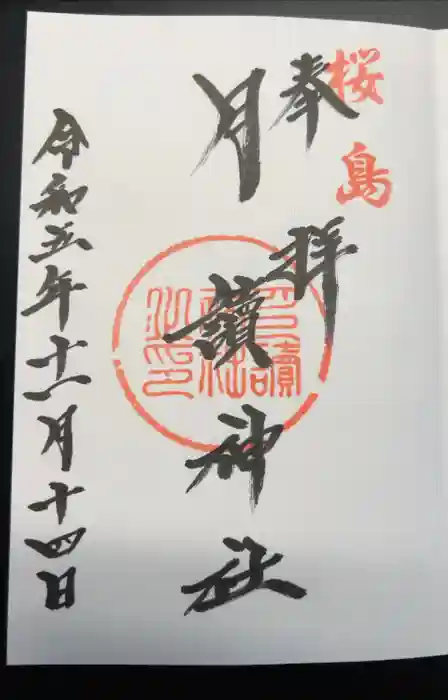 桜島
奉拝
月讀神社
月讀神社之印
令和五年十一月十四日